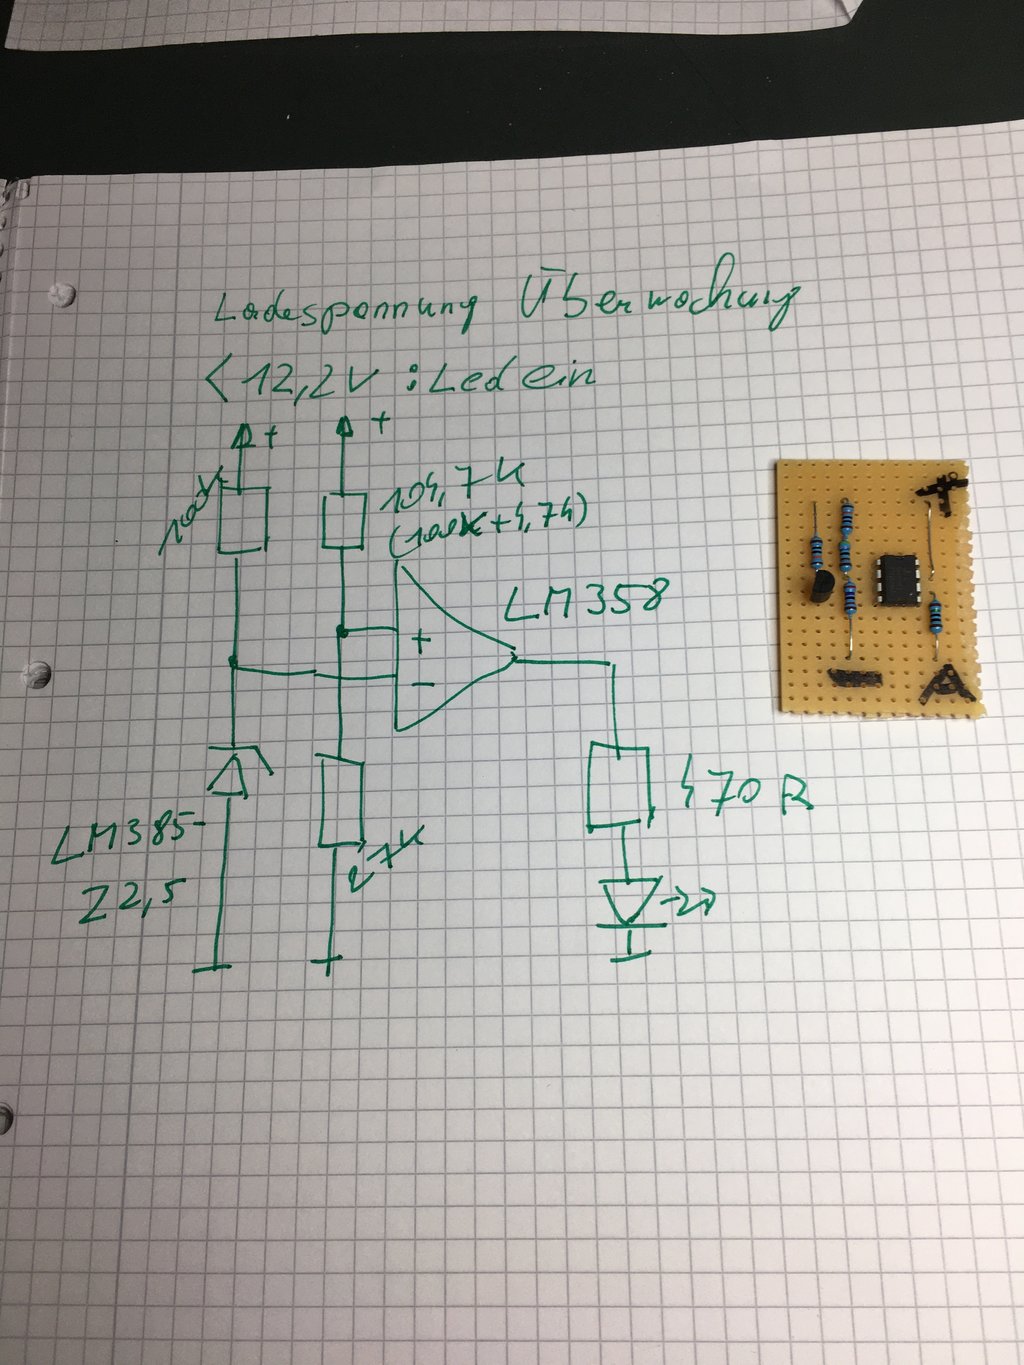 Ladespannung Überwachung
< 12,2V : Led ein
+ +
100K
104,7K
(100K+4,7K)
LM358
+
-
LM385-
Z2,5
27K
470R
+
-
A